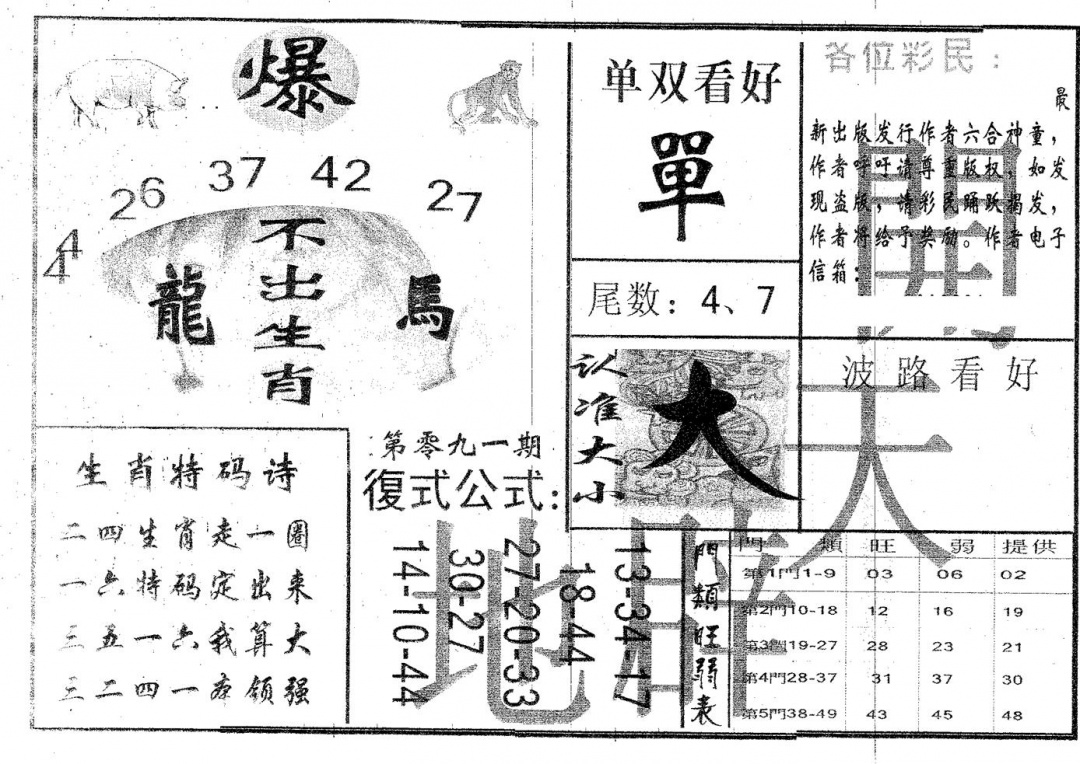 爆
26 37 42 27
44
不出生肖
龍 馬
生肖特码诗
二四生肖走一圈
一六特码定出来
三五一六我算大
三二四一夺领强
第零九一期
復式公式:
14-10-44
30-27
27-20-33
18-44
13-34-17
单双看好
單
尾数: 4、7
认准大小
大
各位彩民:
最
新出版发行作者六合神童,
作者呼吁请尊重版权,如发
现盗版,请彩民踊跃揭发,
作者将给予奖励。作者电子
信箱:
波路看好
開天地旺
門類旺弱表
門 類 旺 弱 提供
第1門1-9 03 06 02
第2門10-18 12 16 19
第3門19-27 28 23 21
第4門28-37 31 37 30
第5門38-49 43 45 48